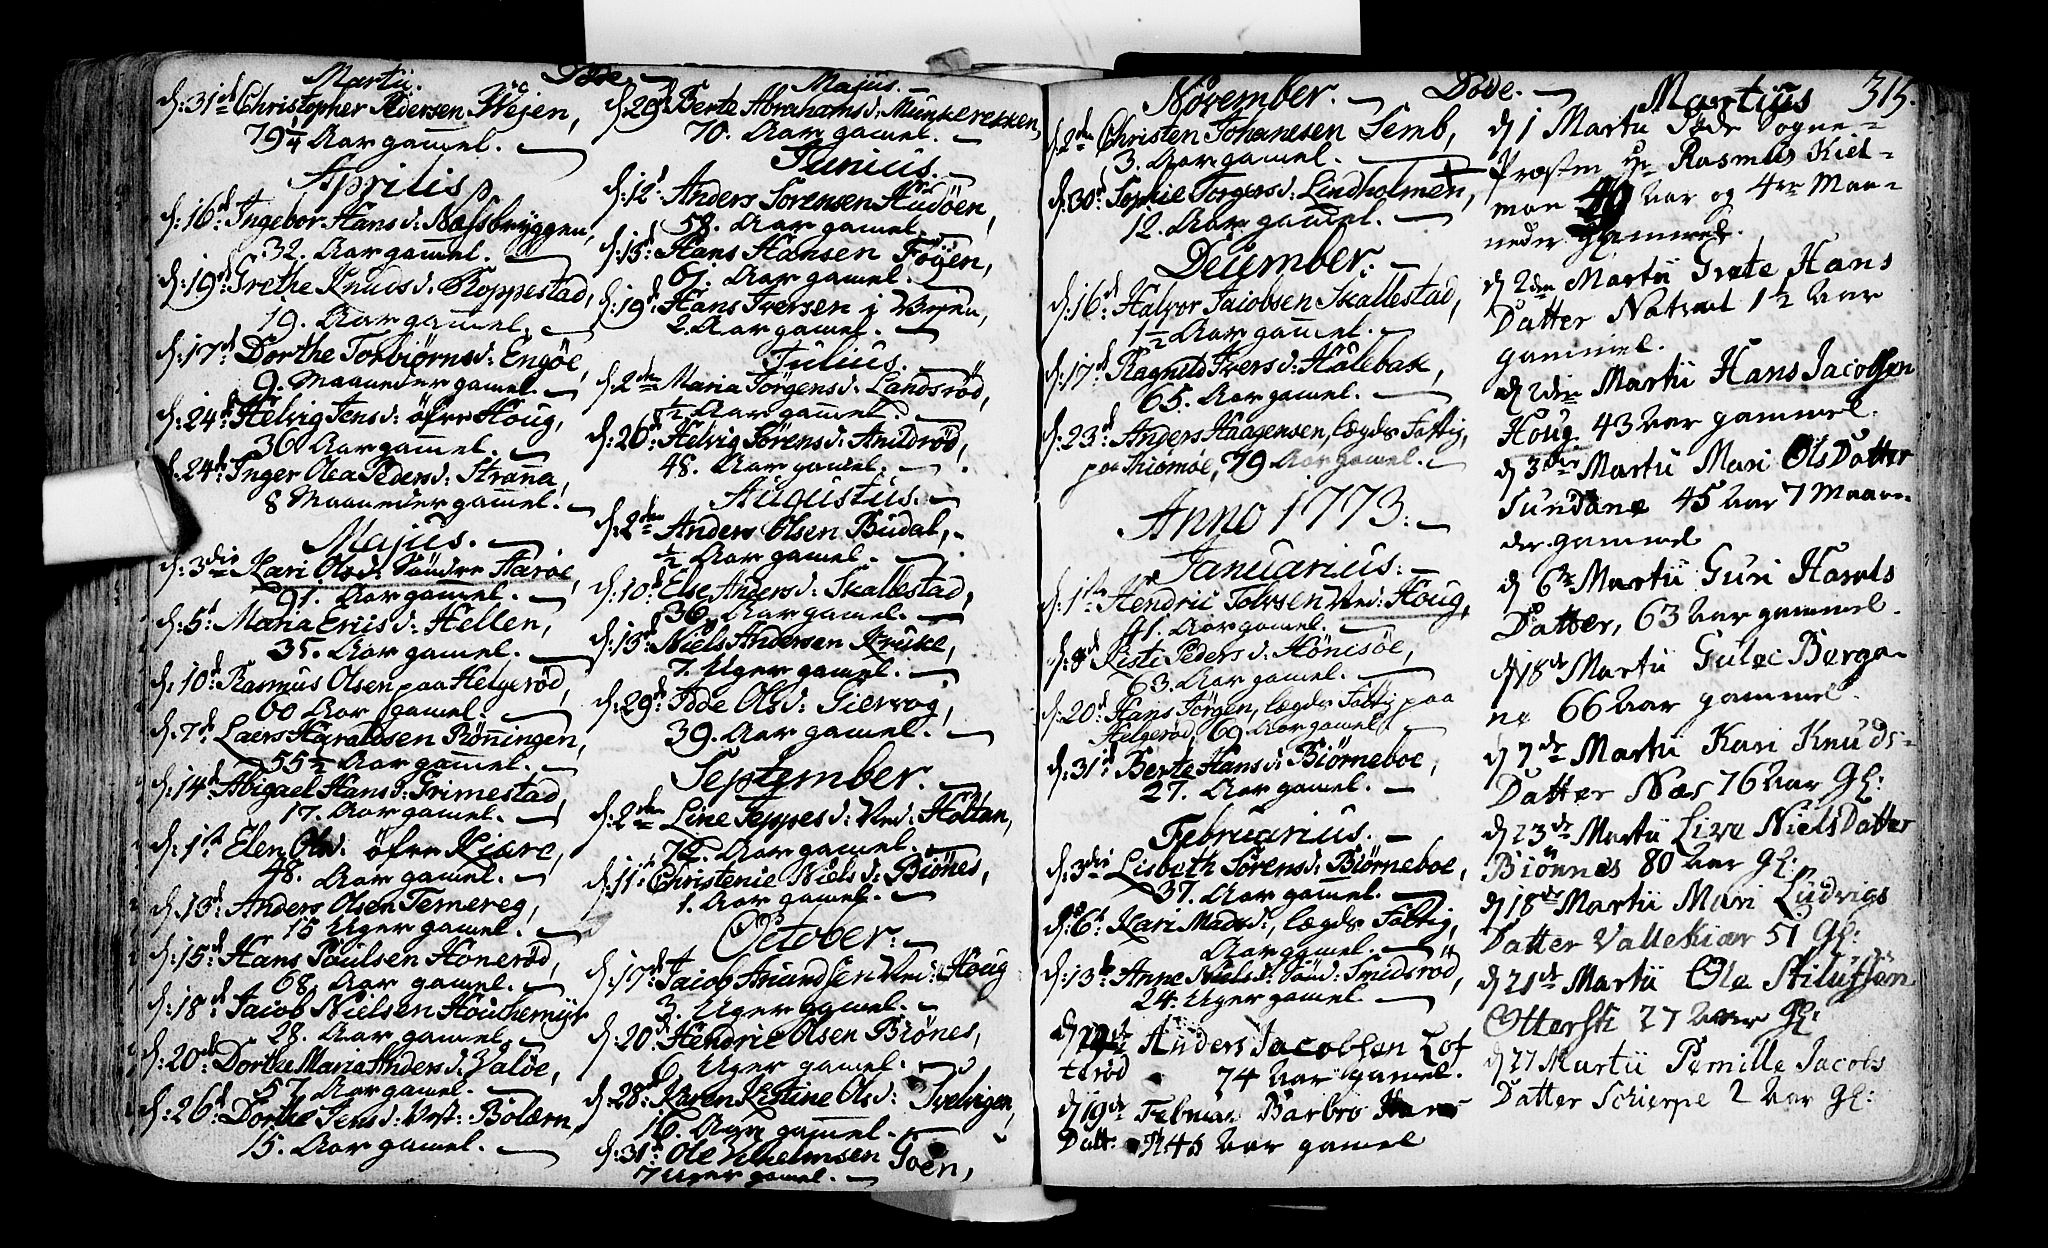 Martii.
Døde.
d: 31d Christopher Pedersen Vejen,
79¼ Aar gamel.
Aprilis
d: 16d Ingebor Hans d: Næssbryggen,
32. Aar gamel.
d: 19d Grethe Knuds d: Koppestad,
19. Aar gamel.
d: 17d Dorthe Torbiørns d: Engøe,
9. Maaneder gamel.
d: 24d Helvig Jens d: øfre Houg,
36 Aar gamel.
d: 24d Inger Olea Peders d: Stranna,
8 Maaneder gamel.
Majus.
d: 3die Kari Ols d: Søndre Aarøe,
91. Aar gamel.
d: 5t Maria Erics d: Hellen,
35. Aar gamel.
d: 10d Rasmus Olsen paa Helgerød,
60 Aar gamel.
d: 7d Laers Haraldsen Rønningen,
55½ Aar gamel.
d: 14d Abigael Hans d: Grimestad,
17. Aar gamel.
d: 1st Elen Ols d: øfre Kiære,
48. Aar gamel.
d: 13d Anders Olsen Temereg,
15 Uger gamel.
d: 15d Hans Poulsen Honerød,
68. Aar gamel.
d: 18d Jacob Nielsen Houchemyr
28. Aar gamel.
d: 20d Dorthe Maria Anders d: Valøe,
57. Aar gamel.
d: 26d Dorthe Jens d: Vest: Bolærn,
15. Aar gamel.
Majus.
d: 29d Berte Abrahams d: Munkerekken,
70. Aar gamel.
Junius.
d: 12t Anders Sørensen Hudøen,
58. Aar gamel.
d: 15d Hans Hansen Føyen,
61. Aar gamel.
d: 19d Hans Iversen i Vejen,
2. Aar gamel.
Julius.
d: 2den Maria Jørgens d: Landsrød,
½ Aar gamel.
d: 26d Helvig Sørens d: Anildrød,
48. Aar gamel.
Augustus.
d: 2den Anders Olsen Budal,
½ Aar gamel.
d: 10d Else Anders d: Skallestad,
36. Aar gamel.
d: 13d Niels Andersen Kruke,
7. Uger gamel.
d: 29d Ode Ols d: Giervog,
39. Aar gamel.
September.
d: 2den Line Jeppes d: Ned: Holtan,
72. Aar gamel.
d: 11t Christenie Niels d: Biønes,
1. Aar gamel.
October.
d: 17d Jacob Amundsen Ned: Houg
3. Uger gamel.
d: 20d Hendric Olsen Biønes,
6. Uger gamel.
d: 28d Karen Kistine Ols d: Svelvigen,
16. Aar gamel.
d: 31d Ole Vilhelmsen Goen,
7 Uger gamel.
November.
Døde.
d: 2den Christen Johannesen Semb,
3. Aar gamel.
d: 30d Sophie Torgers d: Lindholmen,
12. Aar gamel.
December.
d: 16d Halvor Jacobsen Skallestad,
1½ Aar gamel.
d: 17d Ragnild Ivers d: Holebak,
65. Aar gamel.
d: 23d Anders Haagensen, lægds Fattig,
paa Tiømøe, 79 Aar gamel.
Anno 1773.
Januarius.
d: 1ste Hendric Tolvsen Ned: Houg,
91. Aar gamel.
d: 8d Kisti Peders d: Hønisøe,
63. Aar gamel.
d: 20d Hans Jörgen, lægds Fattig paa
Helgerød, 69 Aar gamel,
d: 31d Berte Hans d: Biørneboe,
27. Aar gamel.
Februarius.
d: 3die Lisbeth Sørens d: Biørneboe,
37. Aar gamel.
d: 6t Kari Mads d: lægds Fattig,
Aar gamel.
d: 13d Anne Niels d: Sønd: Smidsrød,
24. Uger gamel
Anders Jacobsen Lof
terød 74 Aar gamel.
d 19de Februar Barbro Hans
Datt: 45 Aar gamel
Martius 315.
d 1 Martii Døde Sogne-
Præsten Hr Rasmus Kiel-
man 40 Aar og 4re Maa-
neder Gammel.
d 2den Martii Grete Hans
Datter Natval 1½ Aar
gammel.
d 2den Martii Hans Jacobsen
Houg 43 Aar gammel.
d 3die Martii Mari Ols Datter
Sundane 45 Aar 7 Maane-
der gammel
d 6te Martii Guri Harals
Datter, 63 Aar gammel.
d 18de Martii Guloc Berga-
ne 66 Aar gammel.
d 7de Martii Kari Knuds-
Datter Næs 76 Aar gl:
d 23de Martii Live Niels Datter
Biønnes 80 Aar gl:
d 18de Martii Mari Ludvigs
Datter Vallekiær 51 gl:
d 21de Martii Ole
27 Aar gl:
d 27 Martii Pernille Jacobs
Datter Schierpe 2 Aar gl: